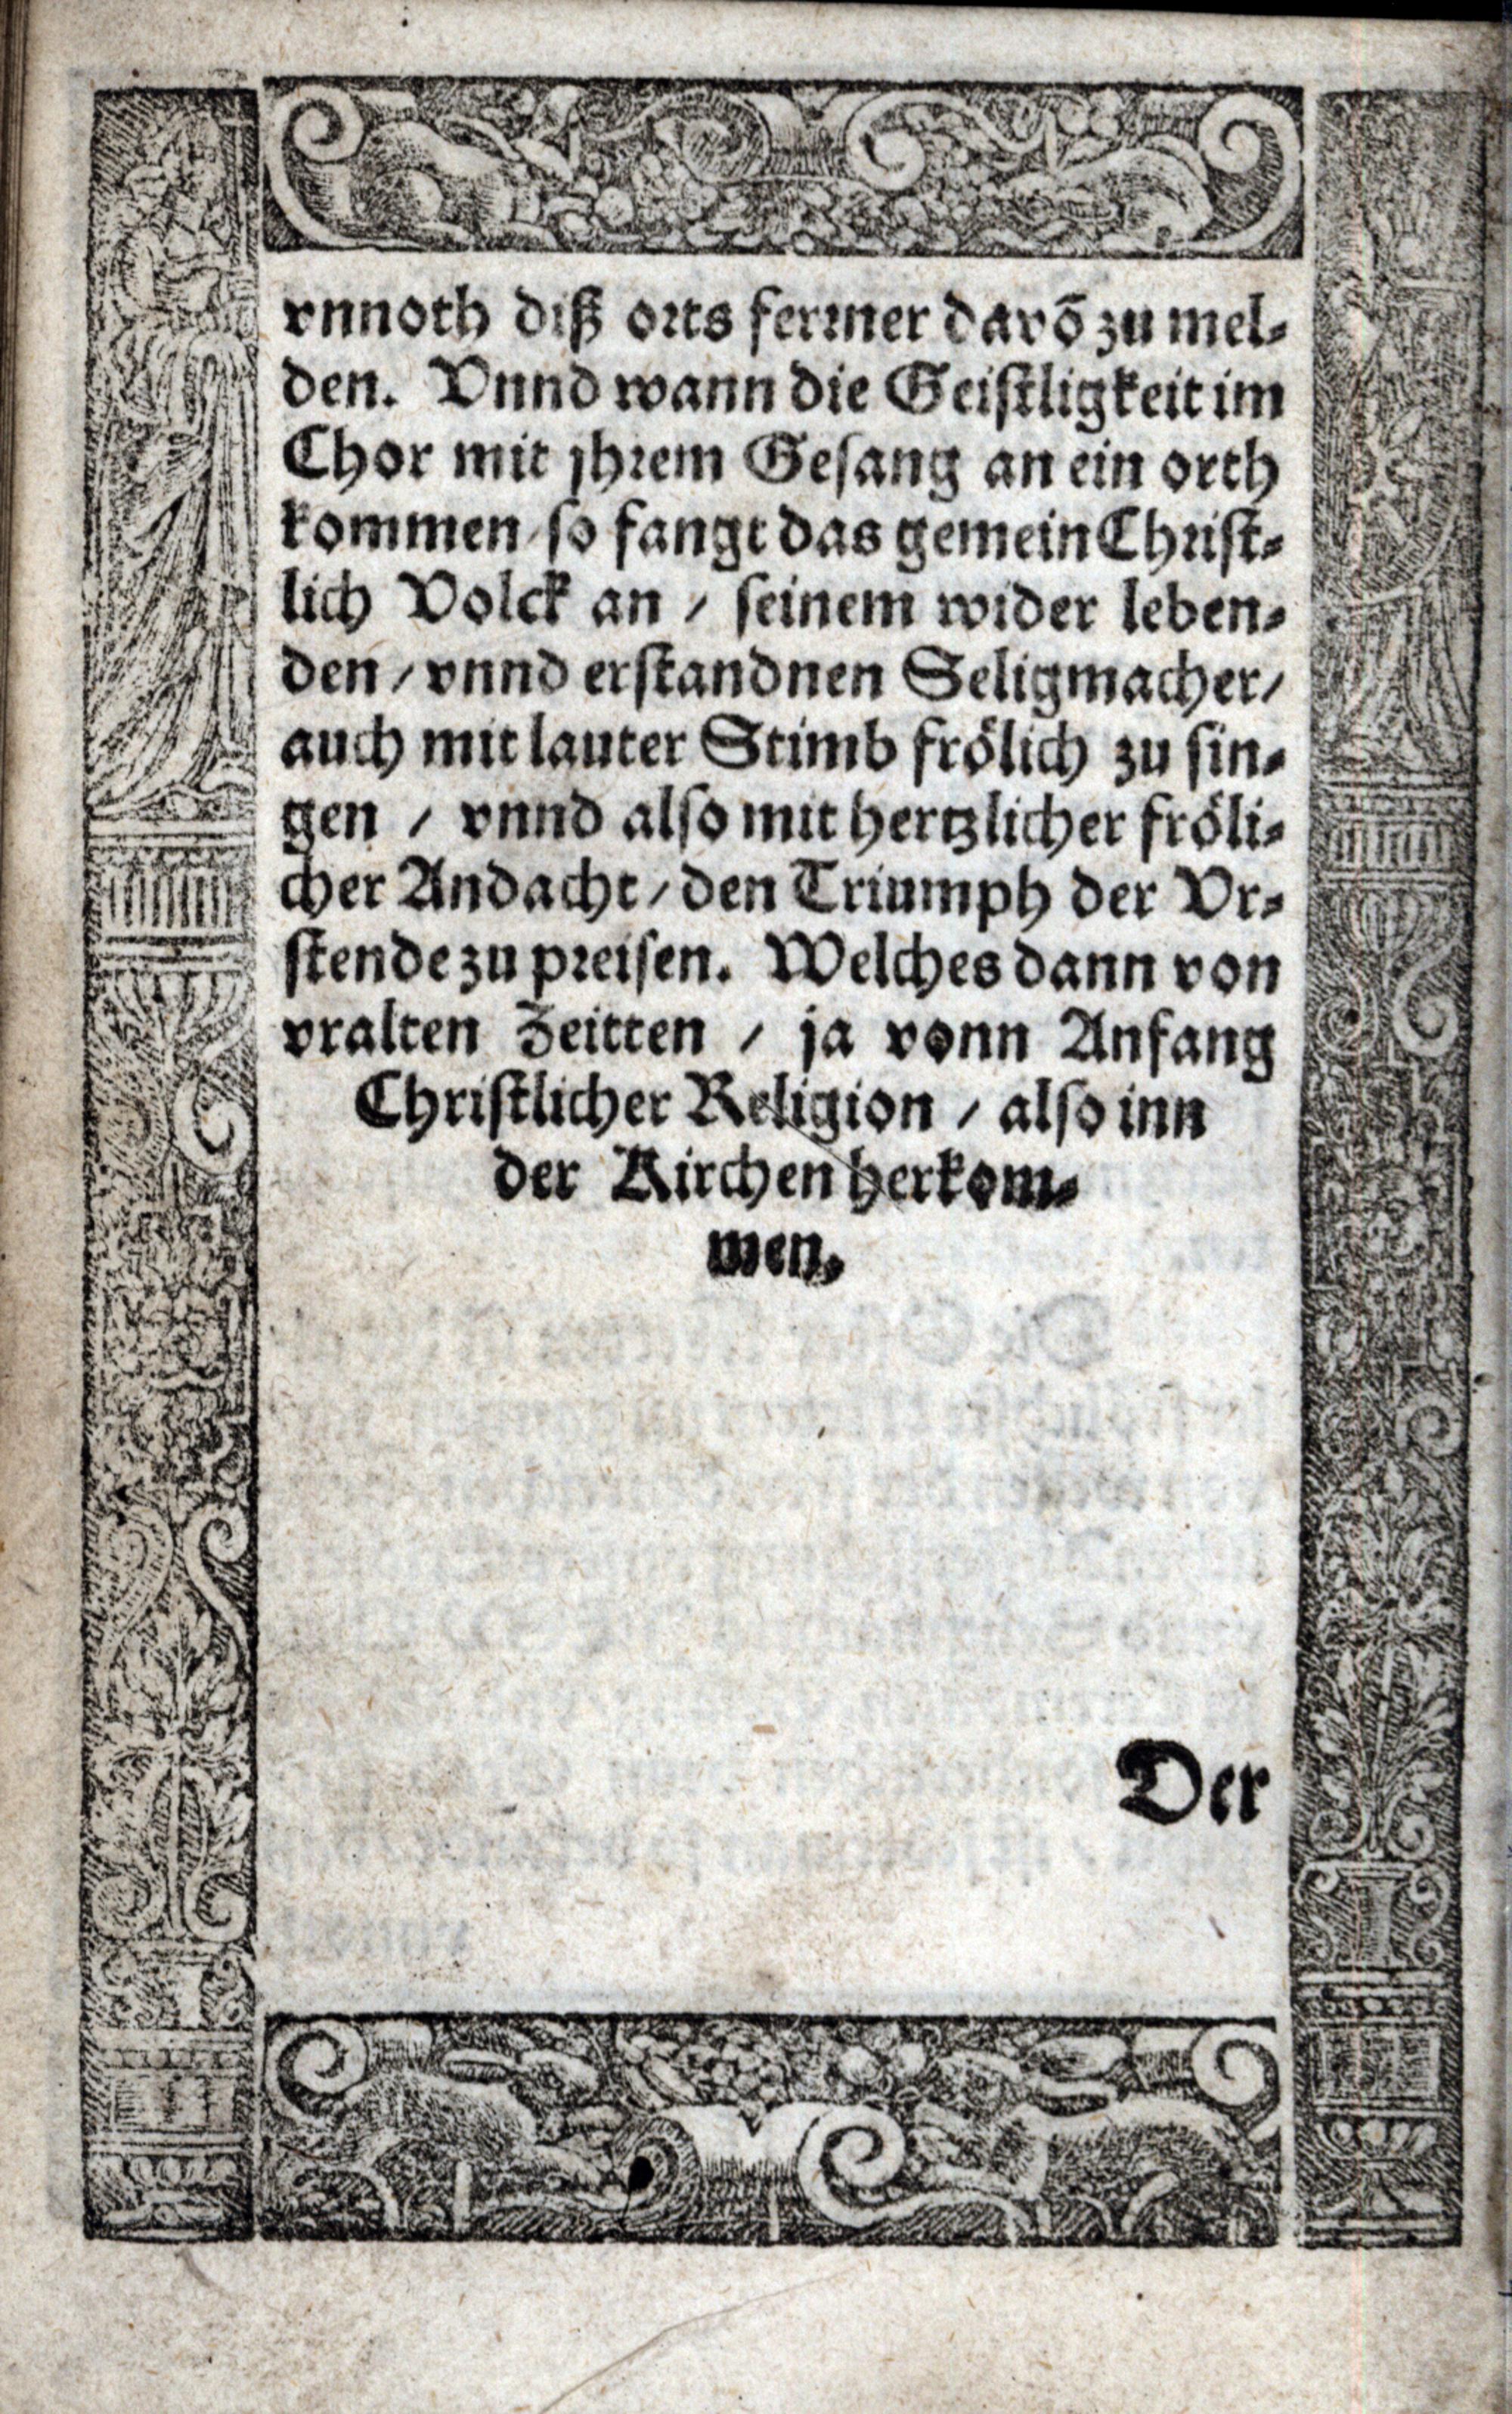 vnnoth diß orts ferrner davõ zu mel⸗
den. Vnnd wann die Geistligkeit im
Chor mit jhrem Gesang an ein orth
kommen / so fangt das gemein Christ⸗
lich Volck an / seinem wider leben⸗
den / vnnd erstandnen Seligmacher /
auch mit lauter Stimb frölich zu sin⸗
gen / vnnd also mit hertzlicher fröli⸗
cher Andacht / den Triumph der Vr⸗
stende zu preisen. Welches dann von
vralten Zeitten / ja vonn Anfang
Christlicher Religion / also inn
der Kirchen herkom⸗
men.
Der